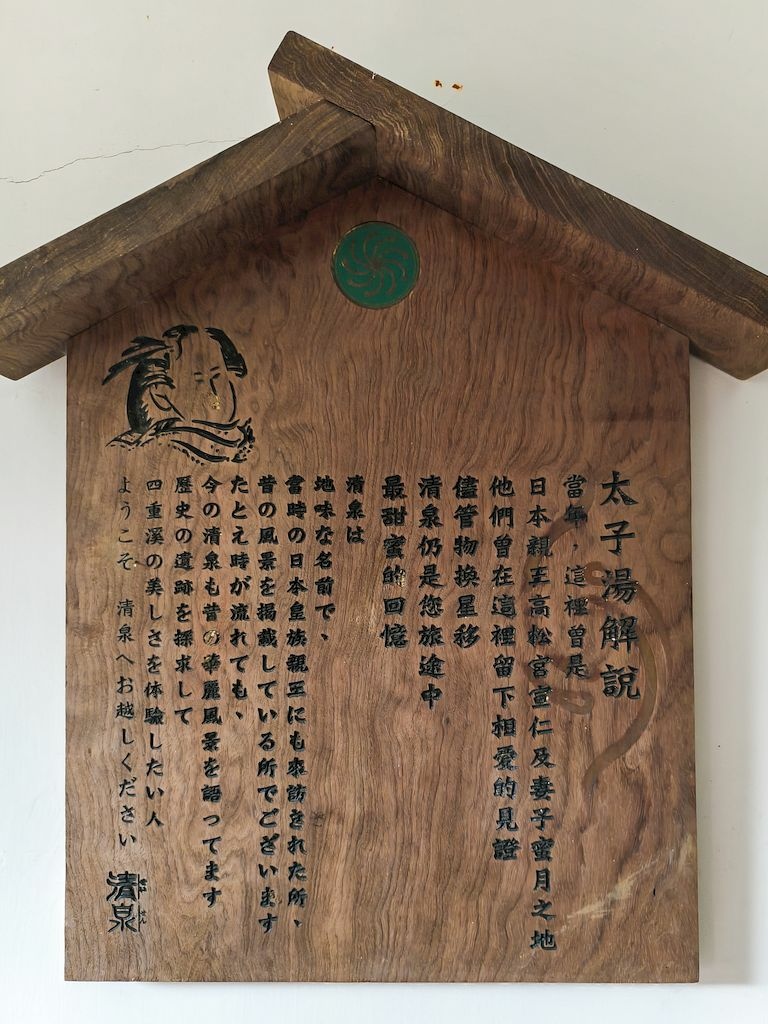 太子湯解說
當年，這裡曾是
日本親王高松宮宣仁及妻子蜜月之地
他們曾在這裡留下相愛的見證
儘管物換星移
清泉仍是您旅途中
最甜蜜的回憶
清泉は
地味な名前で、
當時の日本皇族親王にも来訪された所、
昔の風景を掲載している所でございます
たとえ時が流れても、
今の清泉も昔の華麗風景を語ってます
歷史の遺跡を探求して
四重溪の美しさを体驗したい人
ようこそ 清泉へお越しください
清泉
せい せん